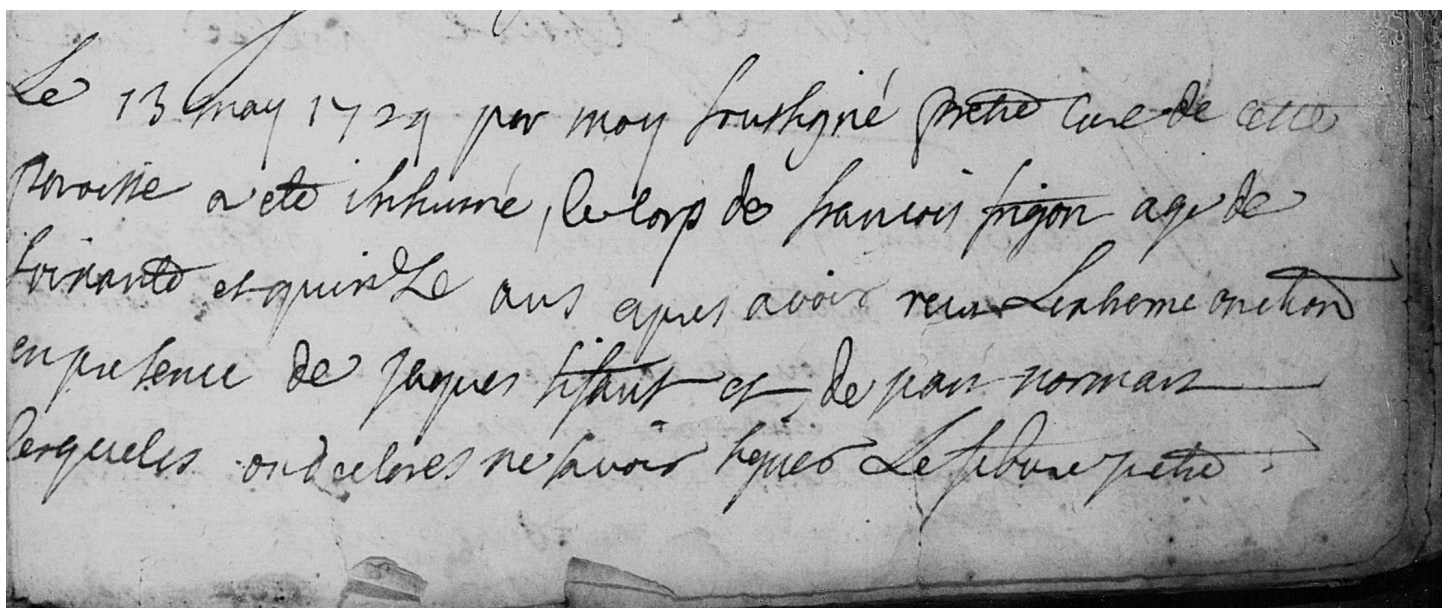 Le 13 may 1729 par moy soussigné pretre Curé de cette
paroisse a eté inhumé, le corp de francois frigon agé de
soixante et quinze ans apres avoir receu Lextreme onction
en presence de jaques et de normant
lesqueles ont declarés ne savoir signer Lefebure petre